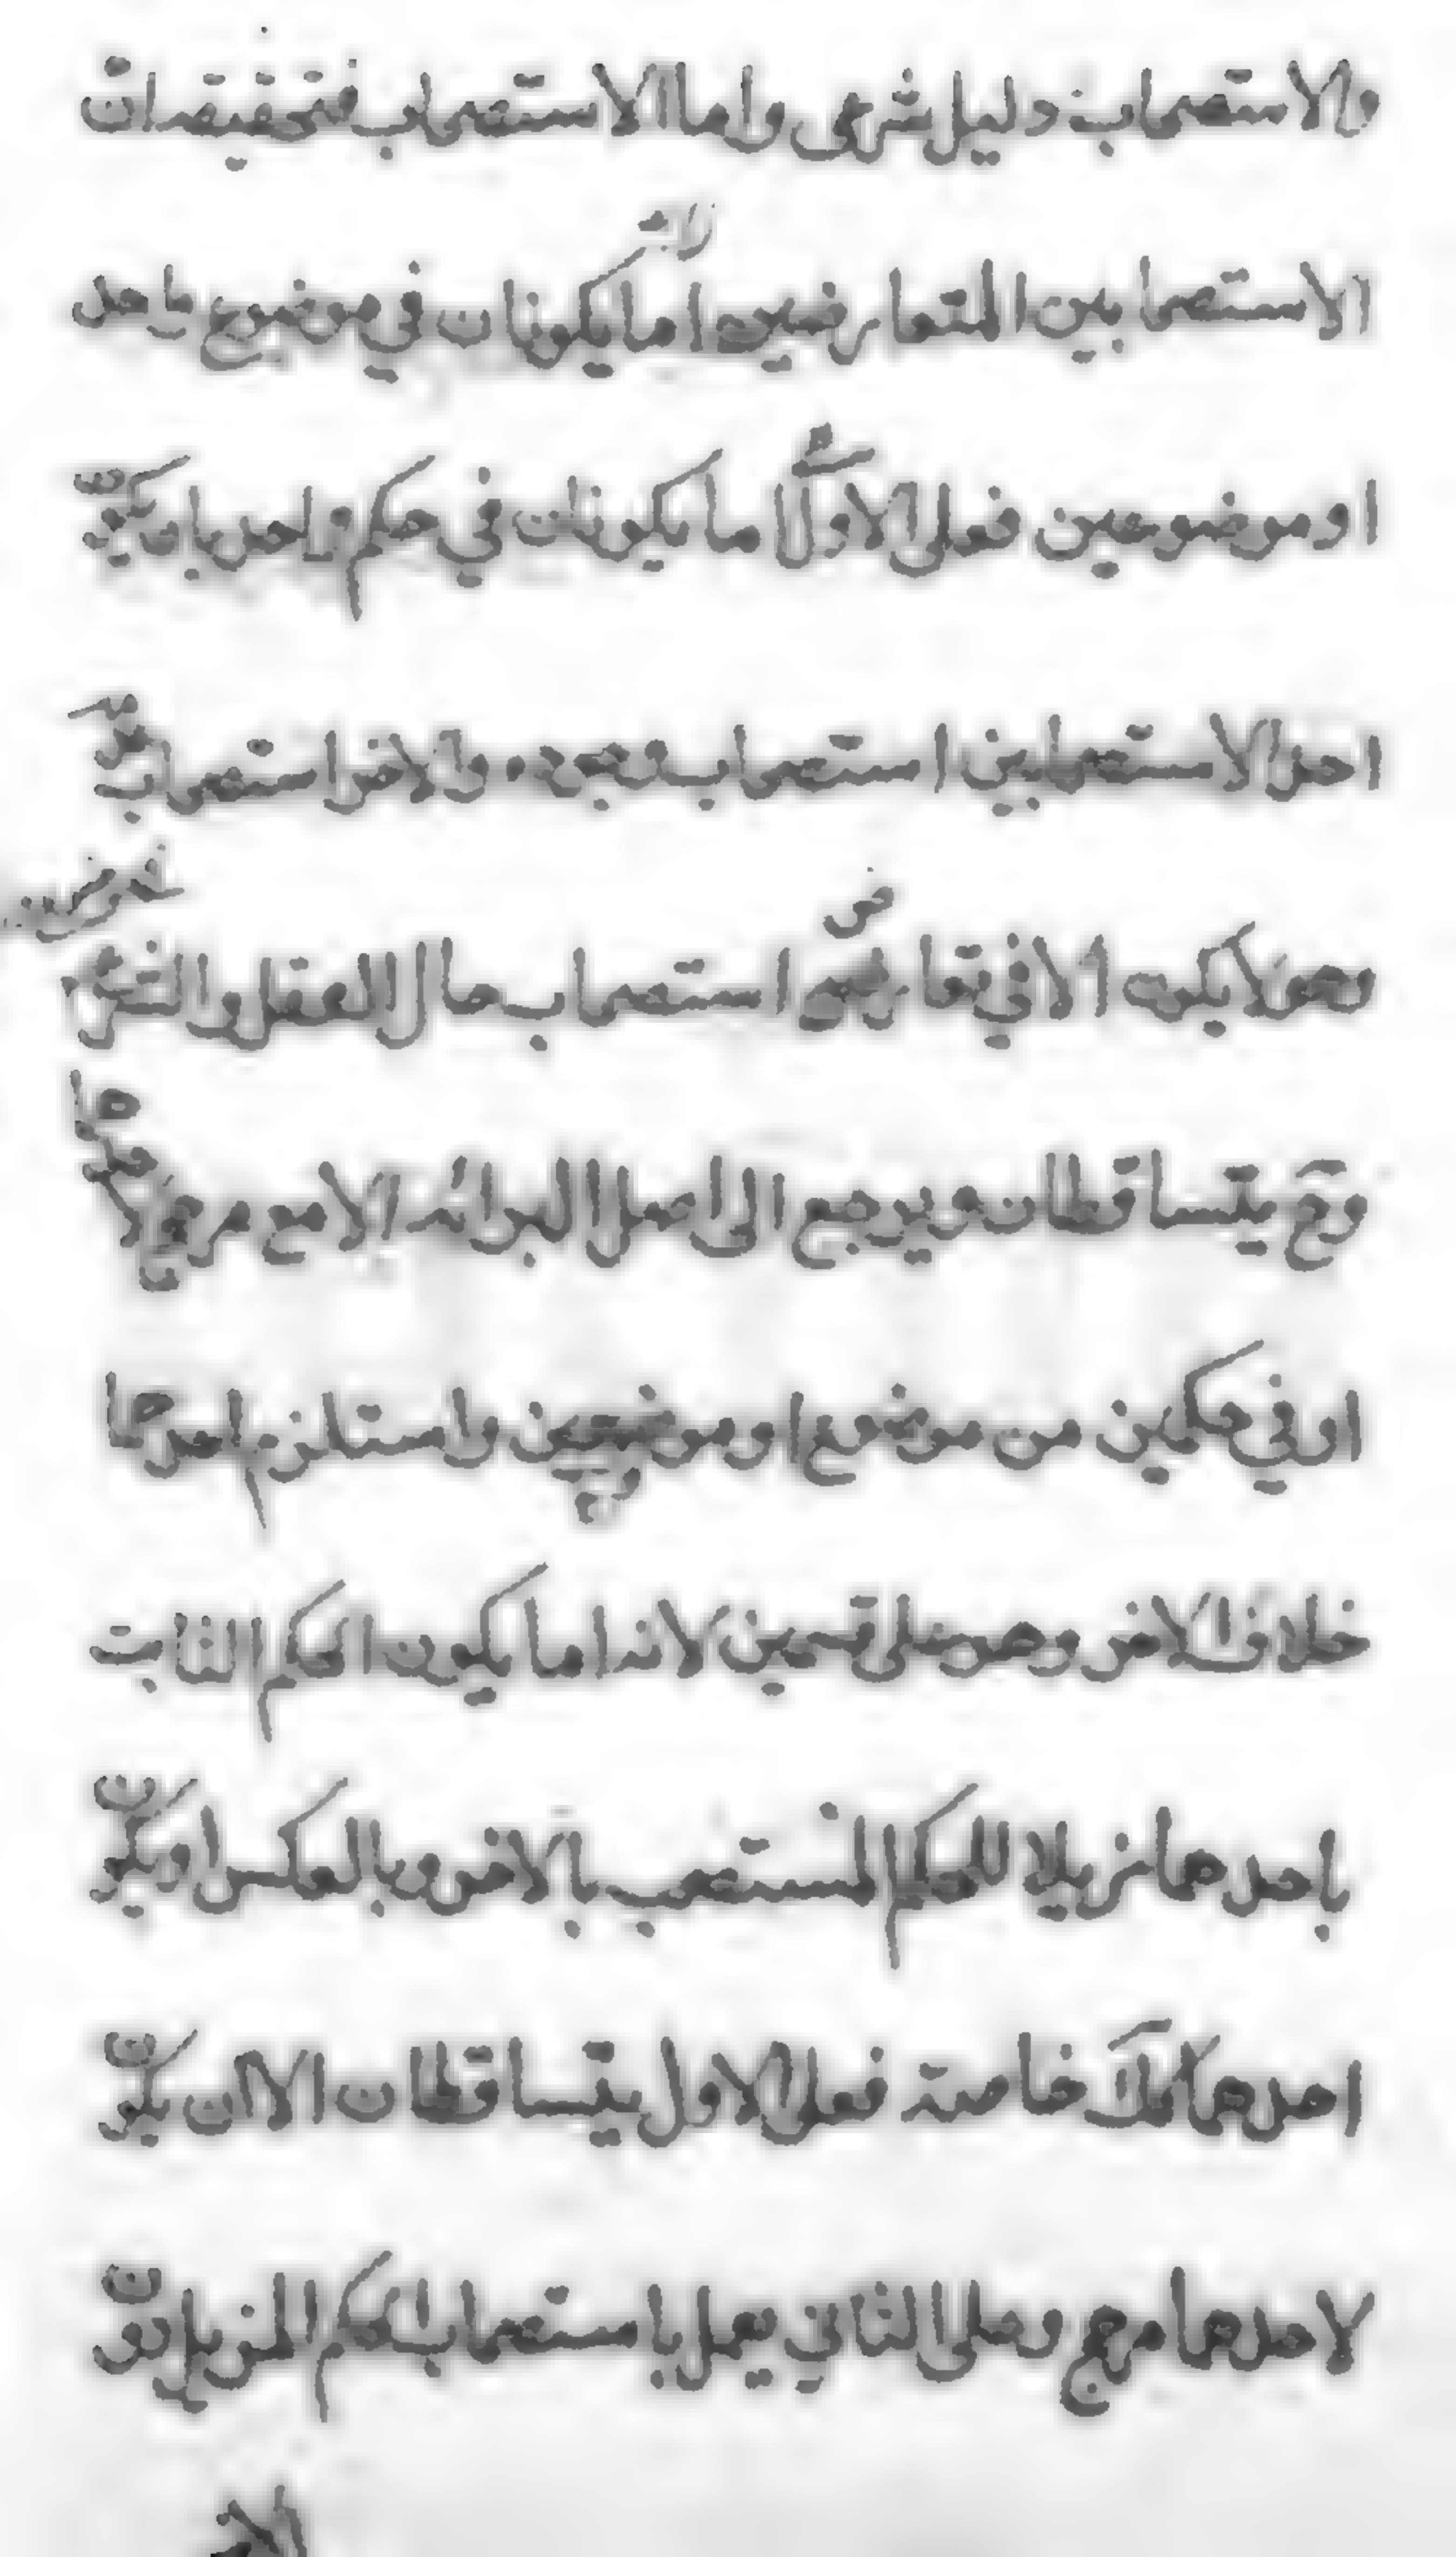 والاستصحاب دليل شرعى واما الاستصحاب فتحقيقه ان
الاستصحابين المتعارضين اما يكونان في موضوع واحد
او موضوعين فعلى الاول اما يكونان في حكم واحد بان يكون
احد الاستصحابين استصحاب وجوده والاخر استصحاب
وهو لا يكون الا في تعارض استصحاب حال العقل والشرع
وح يتساقطان ويرجع الى اصل البرائة الا مع مرجح لاحدهما
او في حكمين من موضوع او موضوعين واستلزم احدهما
خلاف الاخر وهو على قسمين لانه اما يكون الحكم الثابت
باحدهما مزيلا للحكم المستصحب بالاخر وبالعكس او يكون
احدهما كك خاصة فعلى الاول يتساقطان الا ان يكون
لاحدهما مرجح وعلى الثاني يعمل باستصحاب الحكم المزيل دون